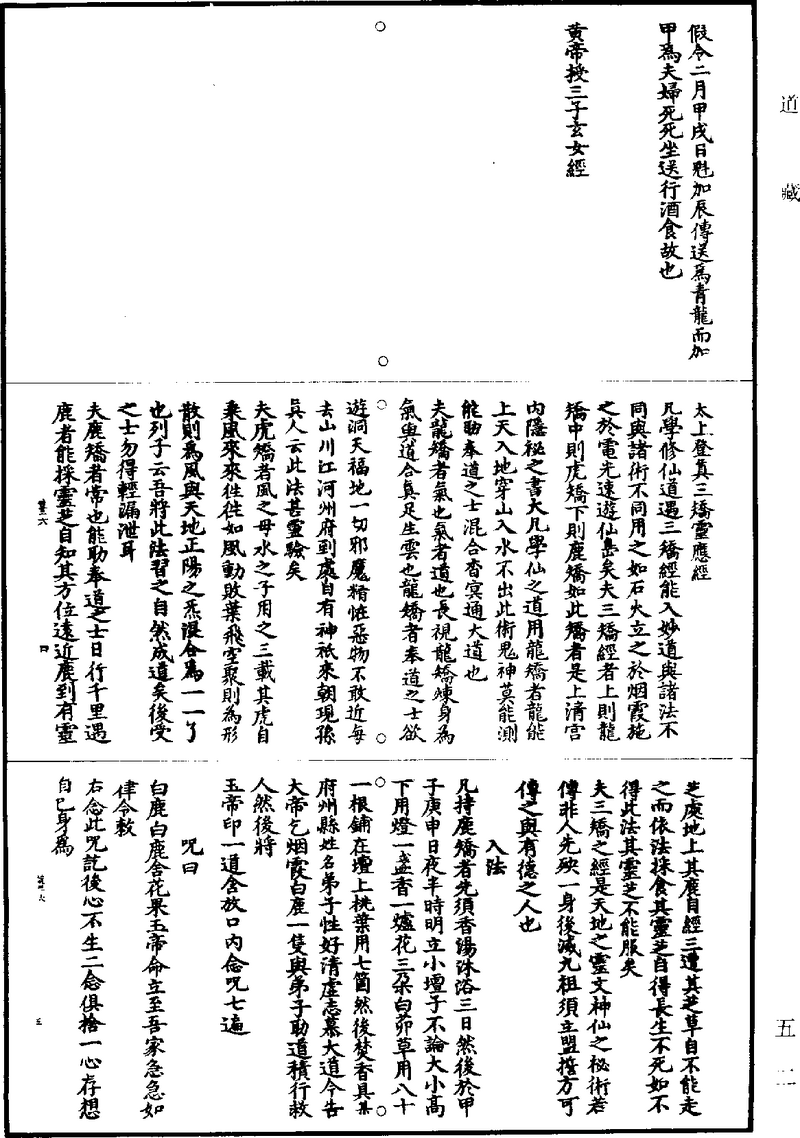 道藏
假令二月甲戌日魁加辰傳送爲青龍而加
甲爲夫婦死死坐送行酒食故也
黃帝授三子玄女經
太上登眞三矯靈應經
凡學修仙道遇三矯經能入妙道與諸法不
同與諸術不同用之如石火立之於烟霞施
之於電光速遊仙島矣夫三矯經者上則龍
矯中則虎矯下則鹿矯如此矯者是上清宮
內隱祕之書大凡學仙之道用龍矯者龍能
上天入地穿山入水不出此術鬼神莫能測
能助奉道之士混合杳冥通大道也
夫龍矯者氣也氣者道也長視龍矯煉身為
氣與道合真足生雲也龍矯者奉道之士欲
遊洞天福地一切邪魔精怪惡物不敢近每
去山川江河州府到處自有神祇來朝現孫
眞人云此法甚靈驗矣
夫虎矯者風之母水之子用之三載其虎自
乘風來來往往如風動敗葉飛空聚則為形
散則爲風與天地正陽之炁混合爲一一了
也列子云吾將此法習之自然成道矣後受
之士勿得輕漏泄耳
夫鹿矯者常也能助奉道之士日行千里遇
鹿者能採靈芝自知其方位遠近鹿到有靈
四
芝處地上其鹿自經三遭其芝草自不能走
之而依法採食其靈芝自得長生不死如不
得此法其靈芝不能服矣
夫三矯之經是天地之靈文神仙之秘術若
傳非人先殃一身後滅九祖須立盟誓方可
傳之與有德之人也
入法
凡持鹿矯者先須香湯沐浴三日然後於甲
子庚申日夜半時明立小壇子不論大小高
下用燈一盞香一爐花三朶白茆草用八十
一根鋪在壇上桃葉用七箇然後焚香具某
府州縣姓名弟子性好清虛志慕大道今告
大帝乞烟霞白鹿一隻與弟子助道積行救
人然後將
玉帝印一道含放口內念呪七遍
呪曰
白鹿白鹿含花果玉帝命立至吾家急急如
律令敕
右念此呪訖後心不生二念俱捨一心存想
自己身為
五
五二